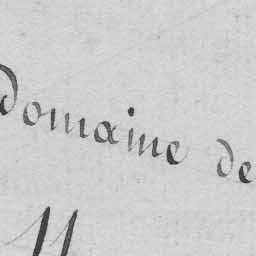 domaine de